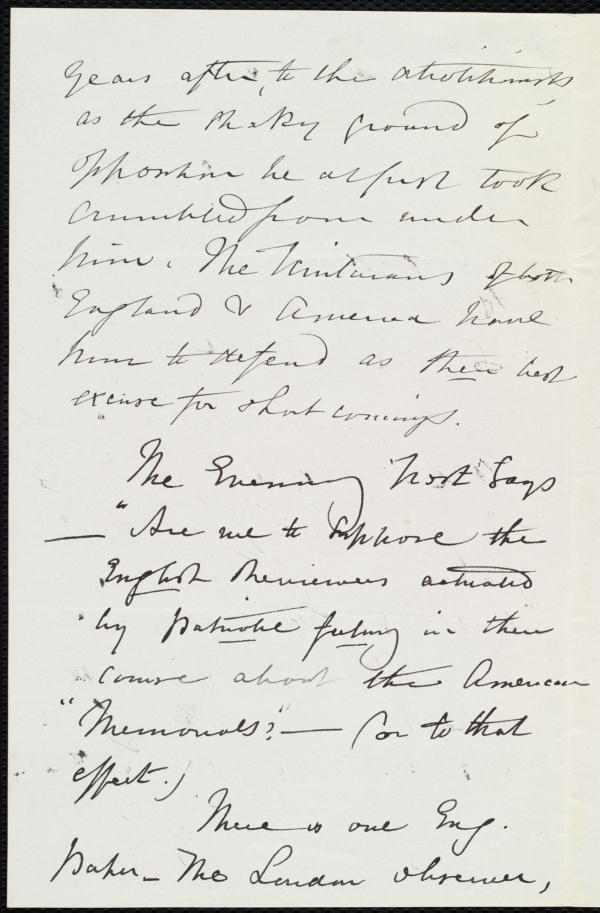 years after, to the abolitionists
as the shaky ground of
opposition he at first took
crumbled from under
him. The Unitarians of both
England & America have
him to defend as their best
excuse for short comings.
The Evening Post says
— "Are we to suppose the
English Reviewers actuated
by patriotic feeling in their
course about the American
"Memorials?" — (or to that
effect.)
There is one Eng.
paper — The London Observer,